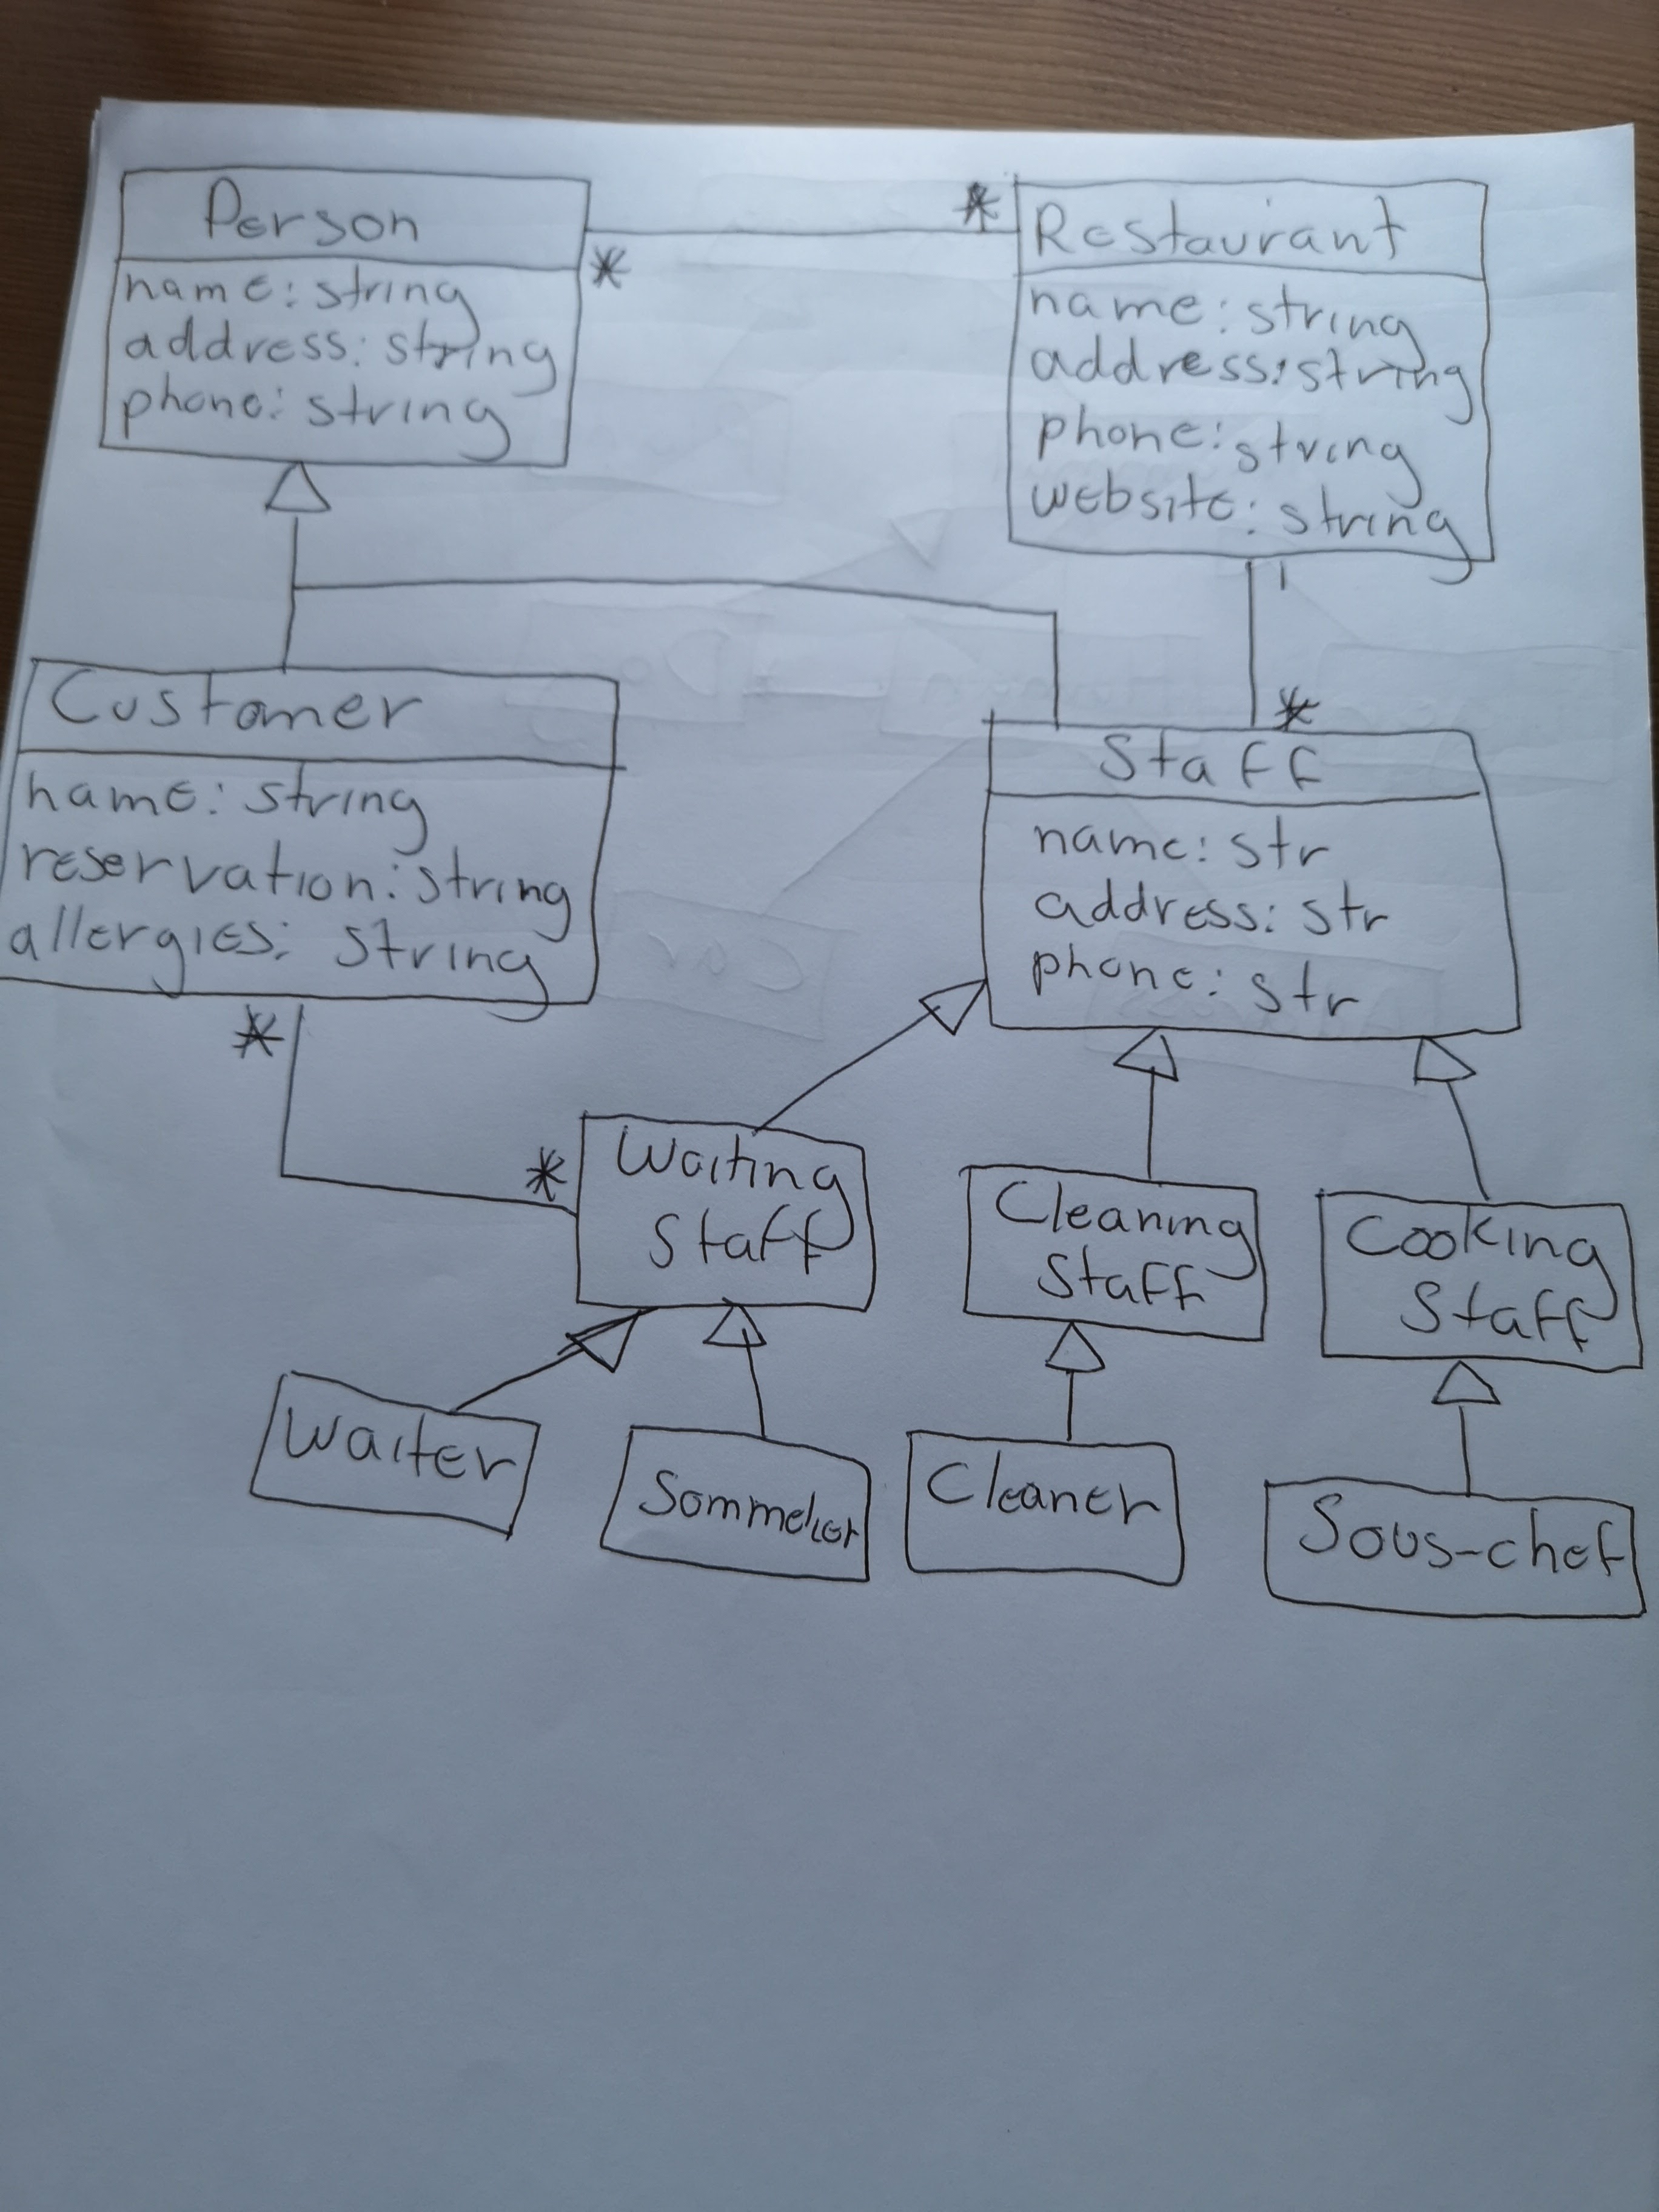 Person
*
*
Restaurant
name: string
address: string
phone: string
name: string
address: string
phone: string
website: string
1
*
Customer
name: string
reservation: string
allergies: string
*
Staff
name: str
address: str
phone: str
*
Waiting
Staff
Cleaning
Staff
Cooking
Staff
Waiter
Sommelier
Cleaner
Sous-chef